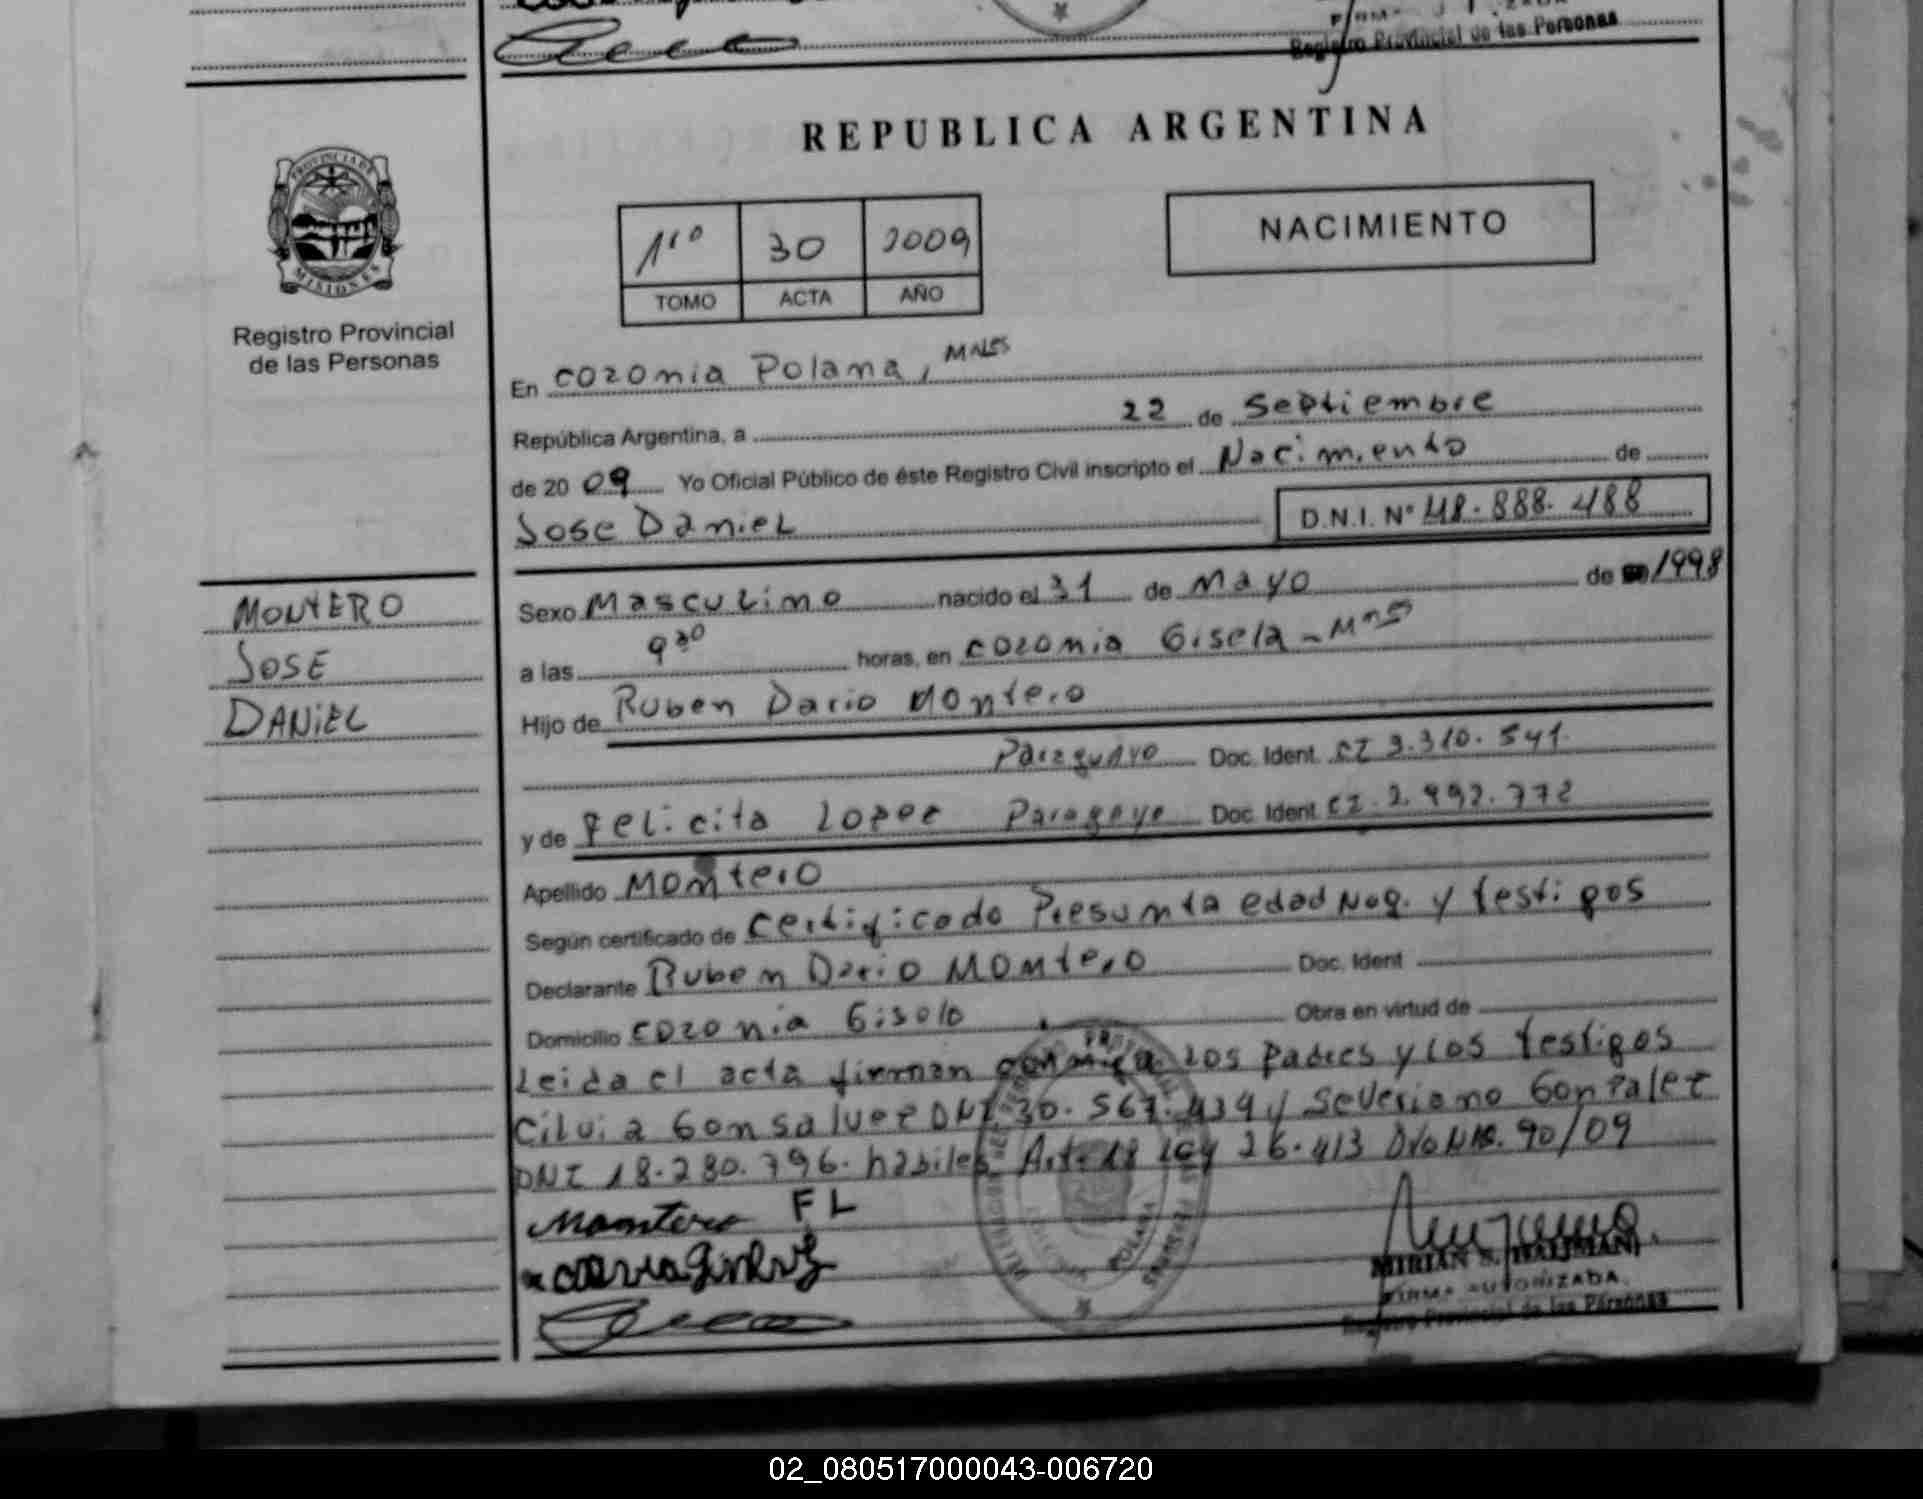 Registro Provincial de las Personas
REPUBLICA ARGENTINA
PROVINCIA DE
MISIONES
Registro Provincial
de las Personas
1ro 30 2009
TOMO ACTA AÑO
NACIMIENTO
En Colonia Polana, MNES
República Argentina, a 22 de Septiembre
de 20 09 Yo Oficial Público de éste Registro Civil inscripto el Nacimiento de
Jose Daniel D.N.I. Nº 48.888.488
MONTERO
JOSE
DANIEL
Sexo Masculino nacido el 31 de Mayo de 1998
a las 9 30 horas, en Colonia Gisela - Mnes
Hijo de Ruben Dario Montero
Paraguayo Doc. Ident. CI 3.310.541.
y de Felicita Lopez Paragaya Doc. Ident CI. 2.992.772
Apellido Montero
Según certificado de Certificado Presunta edad Nac. y testigos
Declarante Ruben Dario Montero Doc. Ident
Domicilio Colonia Gisela Obra en virtud de
Leida el acta firman conmigo los padres y los testigos
Cilvia Gonsalvez DNI 30.567.439 y Severiano Gonzalez
DNI 18.280.796. habiles Art. 18 Ley 26.413 Dto Nº. 90/09
Montero F L
MIRIAN S.
FIRMA AUTORIZADA
Registro Provincial de las Personas
02_080517000043-006720